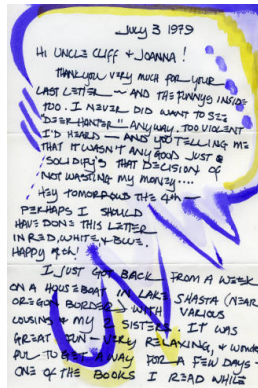 July 3 1979
Hi Uncle Cliff & Joanna!
Thankyou very much for your
last letter — and the funnys inside
too. I never did want to see
"Deer Hanter" anyway. Too violent
I'd heard — and you telling me
that it wasn't any good just
solidifys that decision of
not wasting my money....
Hey tomorrow the 4th —
perhaps I should
have done this letter
in red, white & blue.
Happy 4th!
I just got back from a week
on a houseboat in Lake Shasta (near
Oregon border) with various
cousins & my 2 sisters. It was
great fun — very relaxing, & wonder
ful to get away for a few days —
one of the books I read while